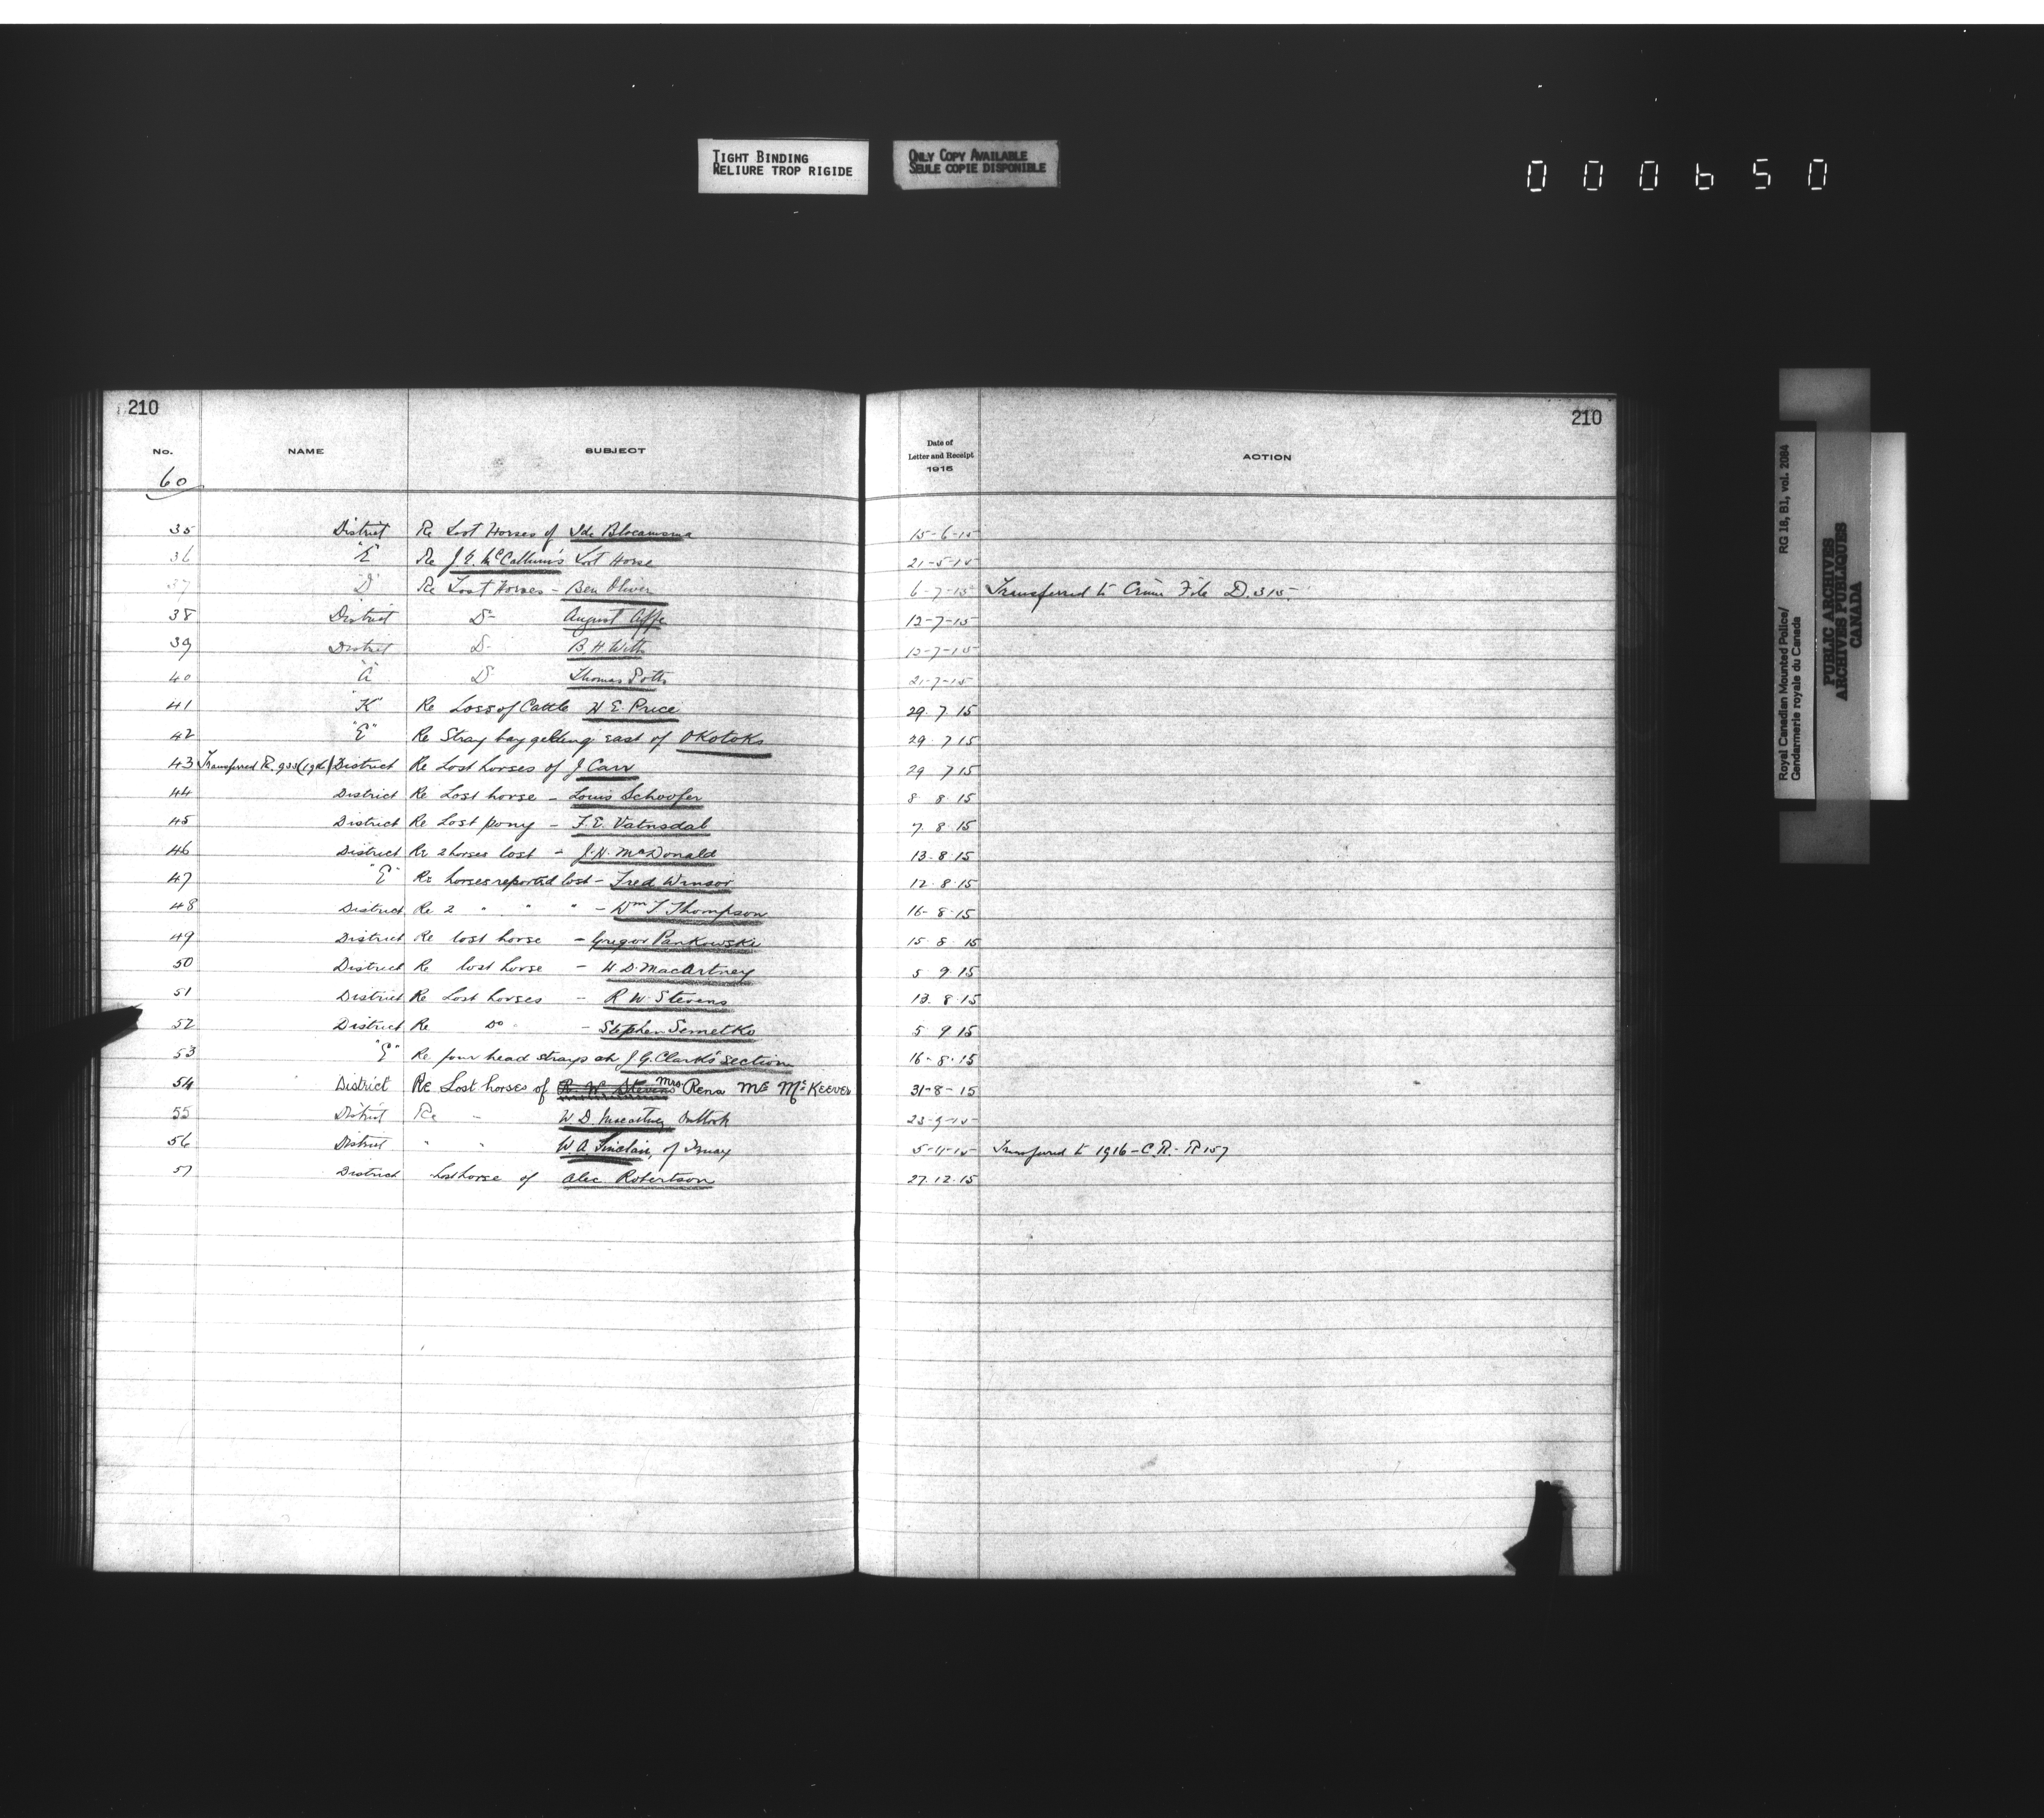 TIGHT BINDING
RELIURE TROP RIGIDE
ONLY COPY AVAILABLE
SEULE COPIE DISPONIBLE
000650
210
210
No. NAME SUBJECT Date of Letter and Receipt 1915 ACTION
60
35 District Re Lost Horses of Ide 15-6-15
36 "E" Re J. McCallum's Lost Horse 21-5-15
37 "D" Re Lost Horses - Ben Oliver 6-7-15 Transferred to Crime File D.315.
38 District Do August 12-7-15
39 District Do B. H. Witt 12-7-15
40 "A" Do Thomas Potts 21-7-15
41 "K" Re Loss of Cattle H E. Price 29. 7 15
42 "E" Re Stray bay gelding east of Okotoks 29. 7 15
43 Transferred R. 933 (1916) District Re Lost horses of J Carr 29 7 15
44 District Re Lost horse - Louis Schoofer 8 8. 15
45 District Re Lost pony - F. E. Vatnsdal 7. 8. 15
46 District Re 2 horses lost - J. H. McDonald 13. 8. 15
47 "E" Re horses reported lost - Fred Winsor 12. 8. 15
48 District Re 2 " " " - Wm T Thompson 16- 8. 15
49 District Re lost horse - Gregor Pankowski 15 8 15
50 District Re lost horse - W D. MacArtney 5 9. 15
51 District Re Lost horses - R W. Stevens 13. 8. 15
52 District Re Do - Stephen Semetko 5 9 15
53 "E" Re four head strays at J. G. Clark's section 16- 8. 15
54 District Re Lost horses of R. W. Stevens Mrs. Rena Mc McKeever 31-8-15
55 District Re " W D. Macartney Outlook 23-9-15
56 District " " W A Sinclair, of Ismay 5-11-15 Transferred to 1916 - C.R. - R 157
57 District Lost horse of Alec Robertson 27. 12. 15
Royal Canadian Mounted Police/ RG 18, B1, vol. 2084
Gendarmerie royale du Canada
PUBLIC ARCHIVES
ARCHIVES PUBLIQUES
CANADA